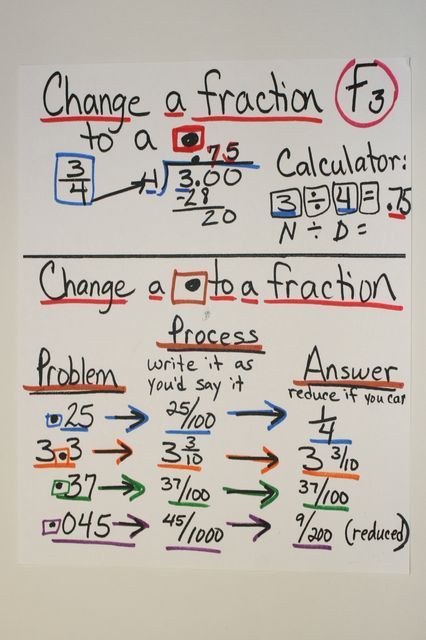 Change a fraction F3
to a .
3/4 → 4)3.00 .75
-28
20
Calculator:
3 ÷ 4 = .75
N ÷ D =
Change a . to a fraction
Problem Process Answer
write it as you'd say it reduce if you can
.25 → 25/100 → 1/4
3.3 → 3 3/10 → 3 3/10
.37 → 37/100 → 37/100
.045 → 45/1000 → 9/200 (reduced)